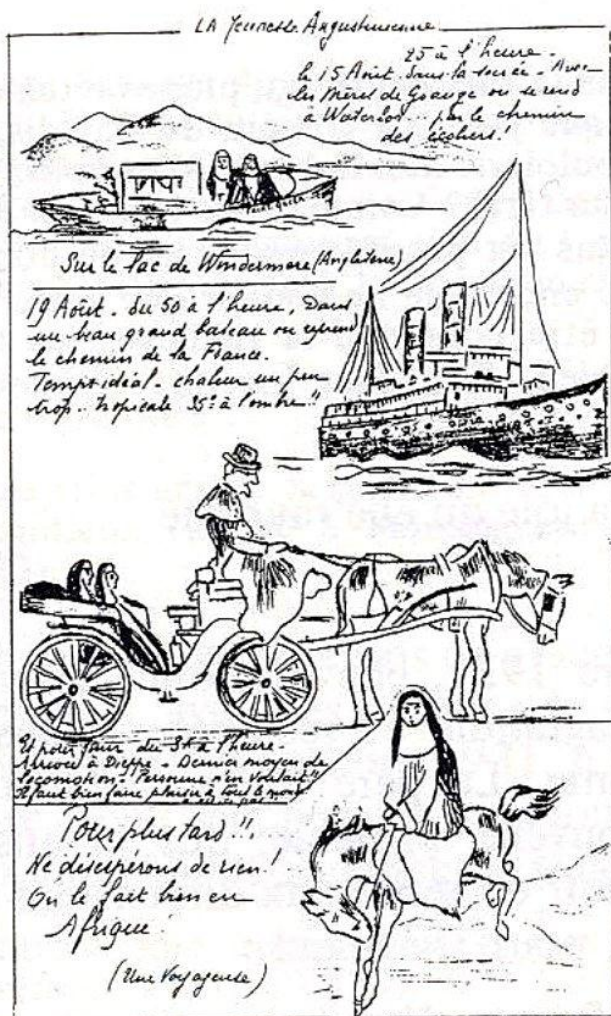 LA Jeunesse Augustinienne
25 à l'heure.
le 15 Août. Dans la soirée - Avec
les Mères de Grange on se rend
à Waterloo... par le chemin
des écoliers!
Sur le lac de Windermere (Angleterre)
19 Août. du 50 à l'heure, Dans
un beau grand bateau on reprend
le chemin de la France.
Temps idéal - chaleur un peu
trop.. tropicale 35° à l'ombre!!
Et pour finir du 3 à l'heure -
Arrivée à Dieppe - Dernier moyen de
locomotion - "Personne n'en voulait"!
Il faut bien faire plaisir à tout le monde
Pour plus tard!!
Ne désespérons de rien!
On le fait bien en
Afrique
(Une Voyageuse)